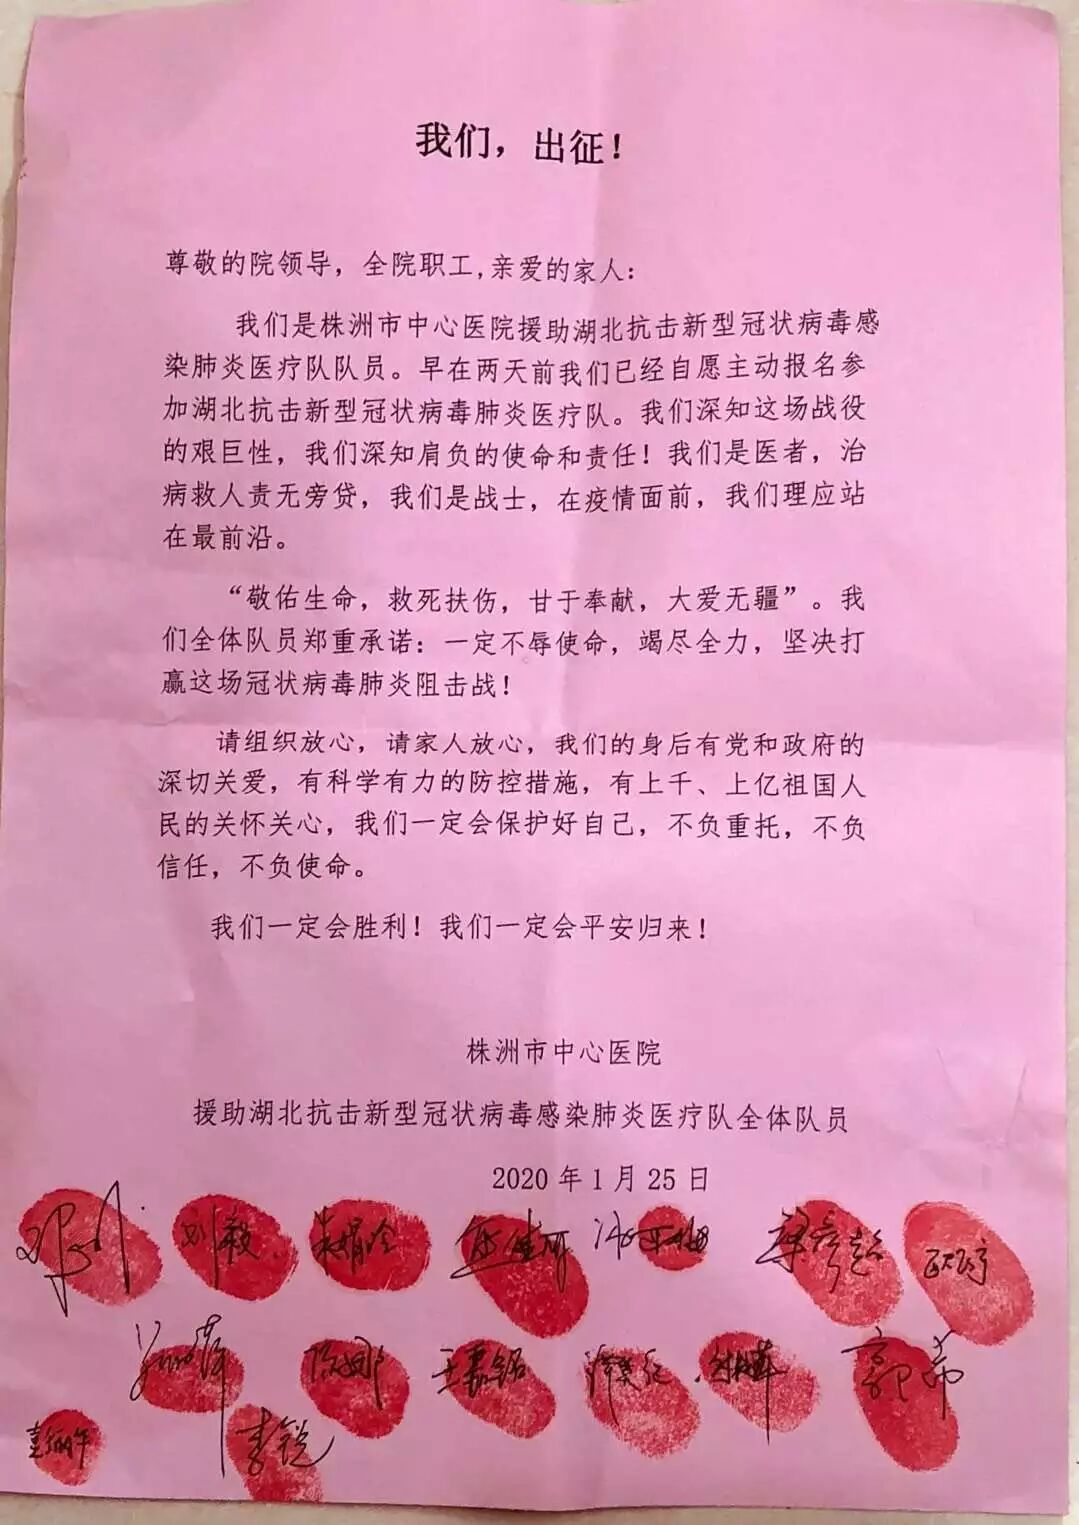 我们，出征！
尊敬的院领导，全院职工,亲爱的家人：
我们是株洲市中心医院援助湖北抗击新型冠状病毒感
染肺炎医疗队队员。早在两天前我们已经自愿主动报名参
加湖北抗击新型冠状病毒肺炎医疗队。我们深知这场战役
的艰巨性，我们深知肩负的使命和责任！我们是医者，治
病救人责无旁贷，我们是战士，在疫情面前，我们理应站
在最前沿。
“敬佑生命，救死扶伤，甘于奉献，大爱无疆”。我
们全体队员郑重承诺：一定不辱使命，竭尽全力，坚决打
赢这场冠状病毒肺炎阻击战！
请组织放心，请家人放心，我们的身后有党和政府的
深切关爱，有科学有力的防控措施，有上千、上亿祖国人
民的关怀关心，我们一定会保护好自己，不负重托，不负
信任，不负使命。
我们一定会胜利！我们一定会平安归来！
株洲市中心医院
援助湖北抗击新型冠状病毒感染肺炎医疗队全体队员
2020 年 1 月 25 日
刘毅
陈娜 王嘉铭 郭希
李锐